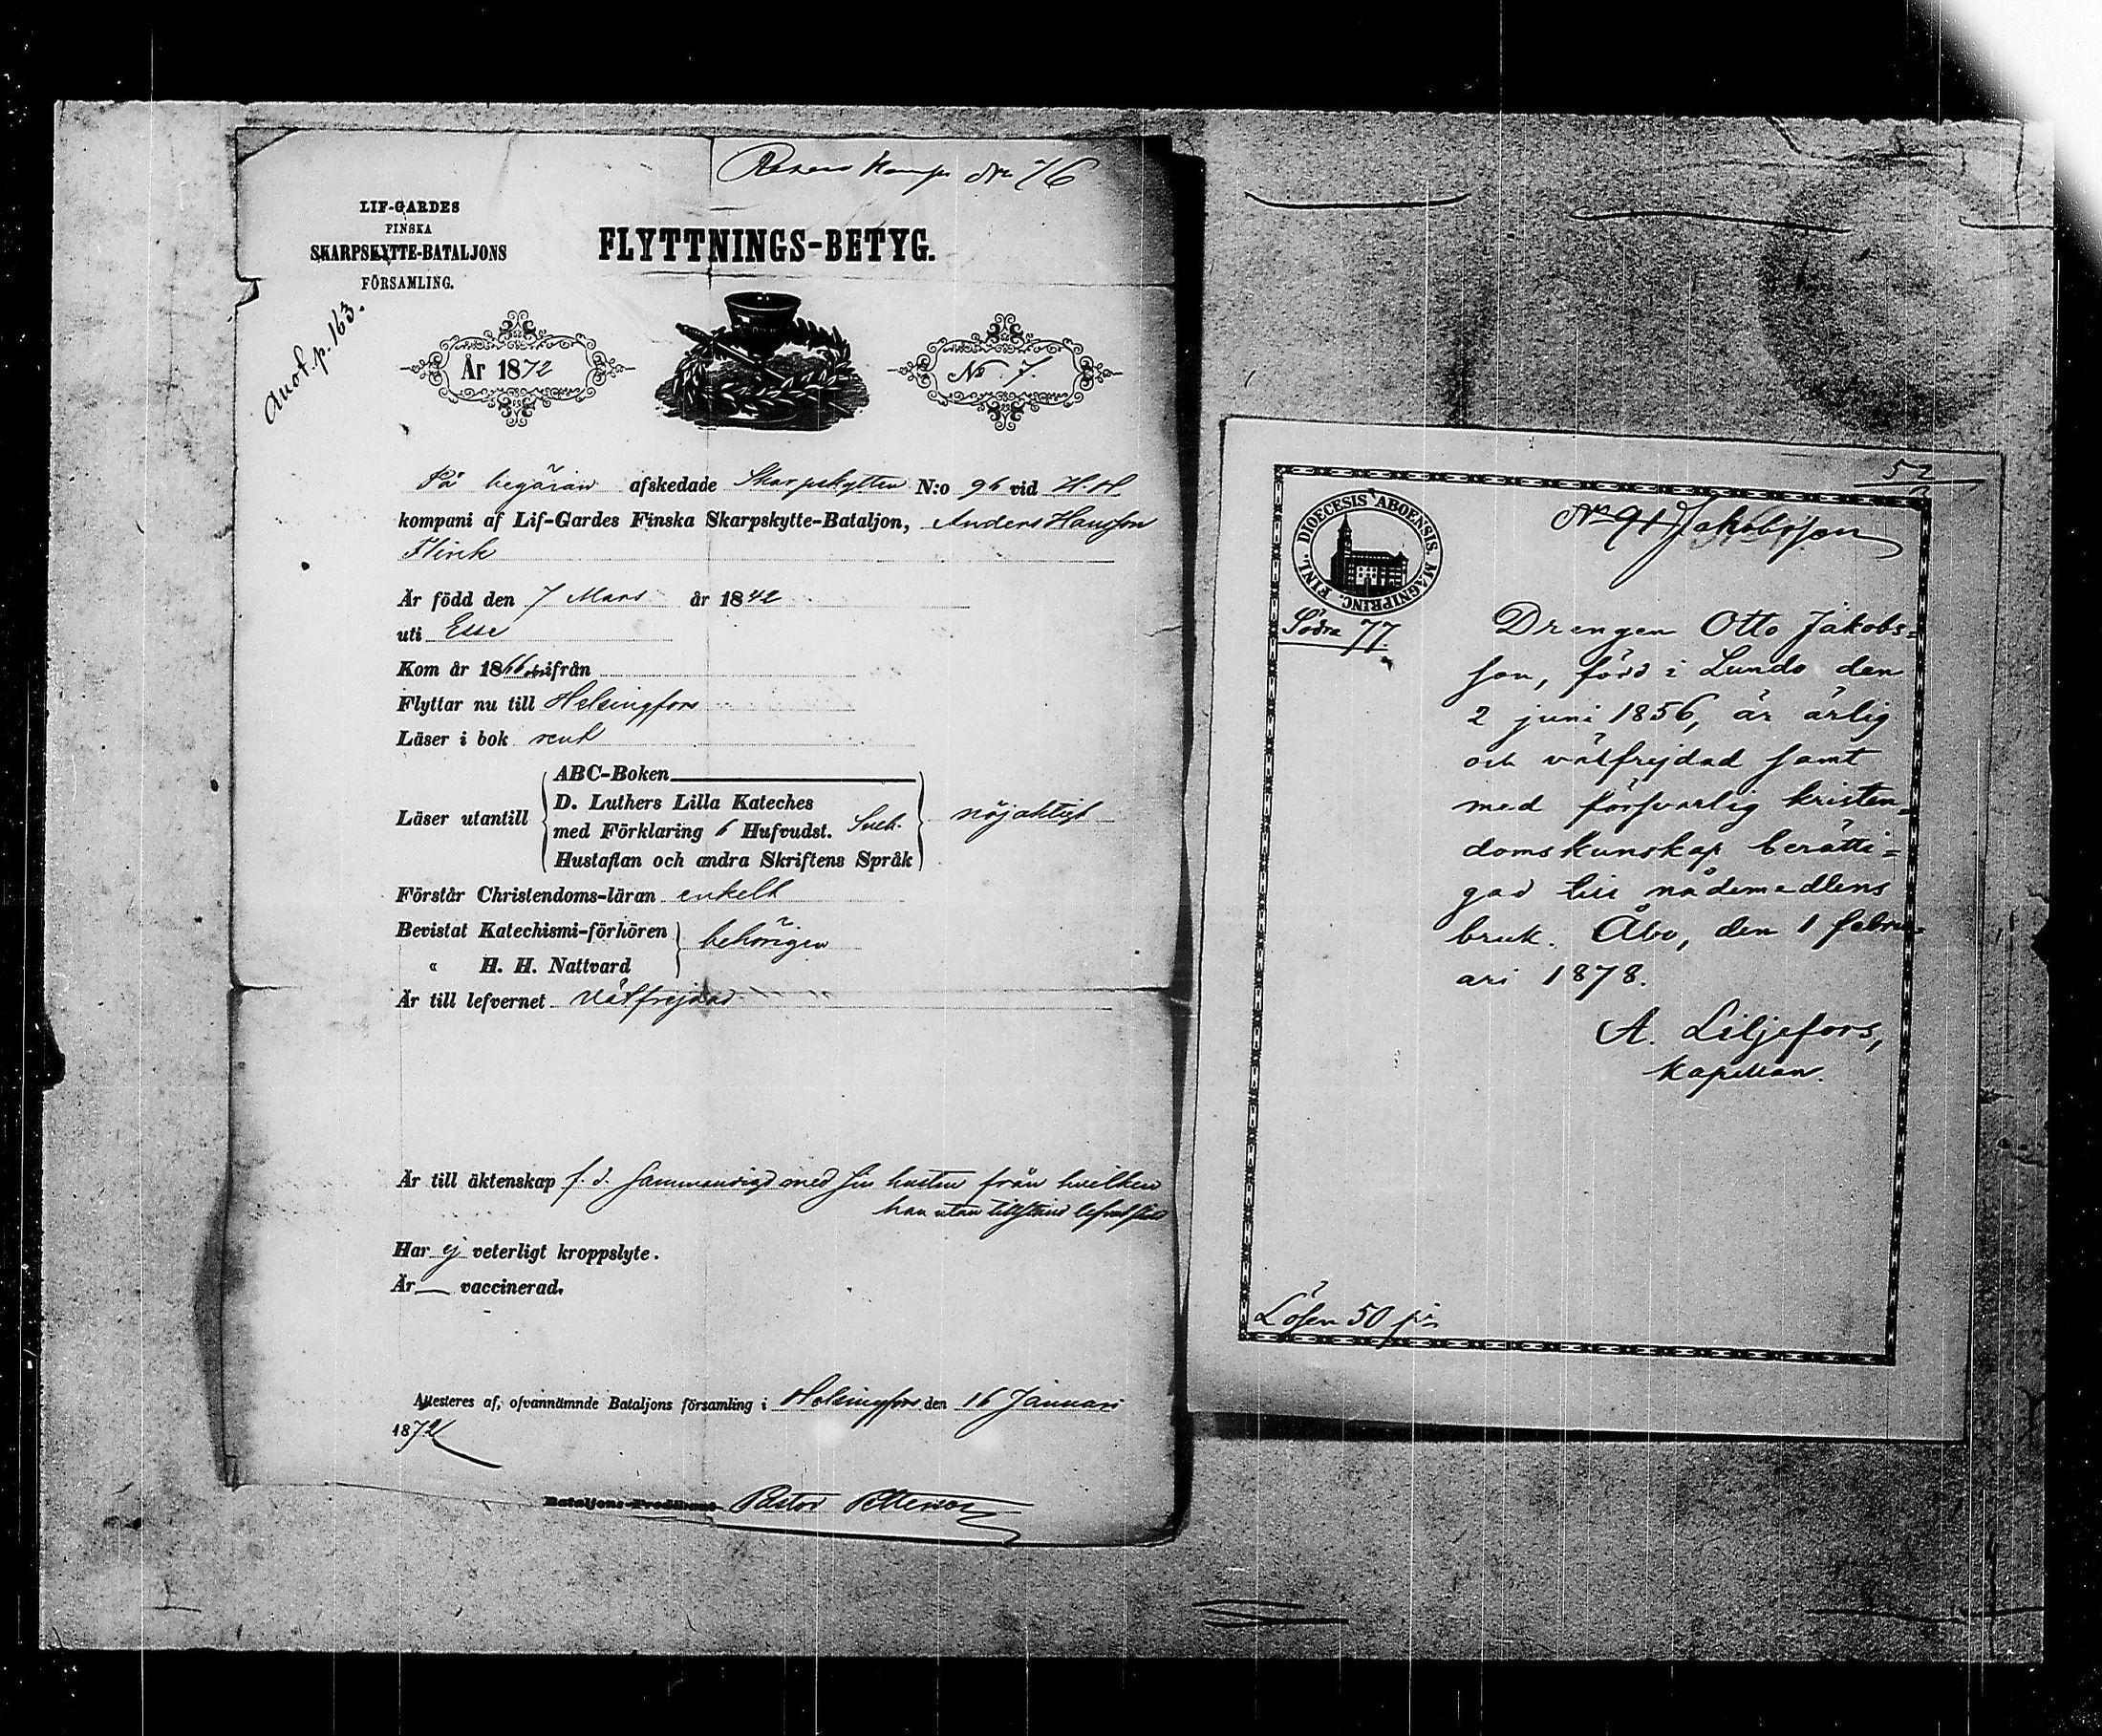 No 76
LIF-GARDES
FINSKA
SKARPSKYTTE-BATALJONS
FÖRSAMLING.
FLYTTNINGS-BETYG.
Anot. p. 163.
År 1872
No 7.
På begäran afskedade Skarpskytten N:o 96 vid
kompani af Lif-Gardes Finska Skarpskytte-Bataljon, Anders Hansson
Flink
Är född den 7 Mars år 1842
uti Esse
Kom år 1866 ifrån
Flyttar nu till Helsingfors
Läser i bok rent
Läser utantill
ABC-Boken
D. Luthers Lilla Kateches
med Förklaring 6 Hufvudst. Sveb.
Hustaflan och andra Skriftens Språk
nöjaktigt
Förstår Christendoms-läran enkelt
Bevistat Katechismi-förhören
« H. H. Nattvard
behörigen
Är till lefvernet välfrejdad
Är till äktenskap f. d. sammanvigd med sin hustru från hvilken
han utan tillstånd
Har ej veterligt kroppslyte.
Är — vaccinerad.
Attesteres af, ofvannämnde Bataljons församling i Helsingfors den 16 Januari
1872
Bataljons-Predikant Pastor
52
No 91 Jakobsson
DIOECESIS ABOENSIS. MAGNI PRINC. FINL.
Södra 77.
Drengen Otto Jakobs=
son, född i Lundo den
2 juni 1856, är ärlig
och välfrejdad samt
med försvarlig kristen=
domskunskap berätti=
gad till nådemedlens
bruk. Åbo, den 1 febru=
ari 1878.
A. Liljefors,
kapellan.
Lösen 50 p:i